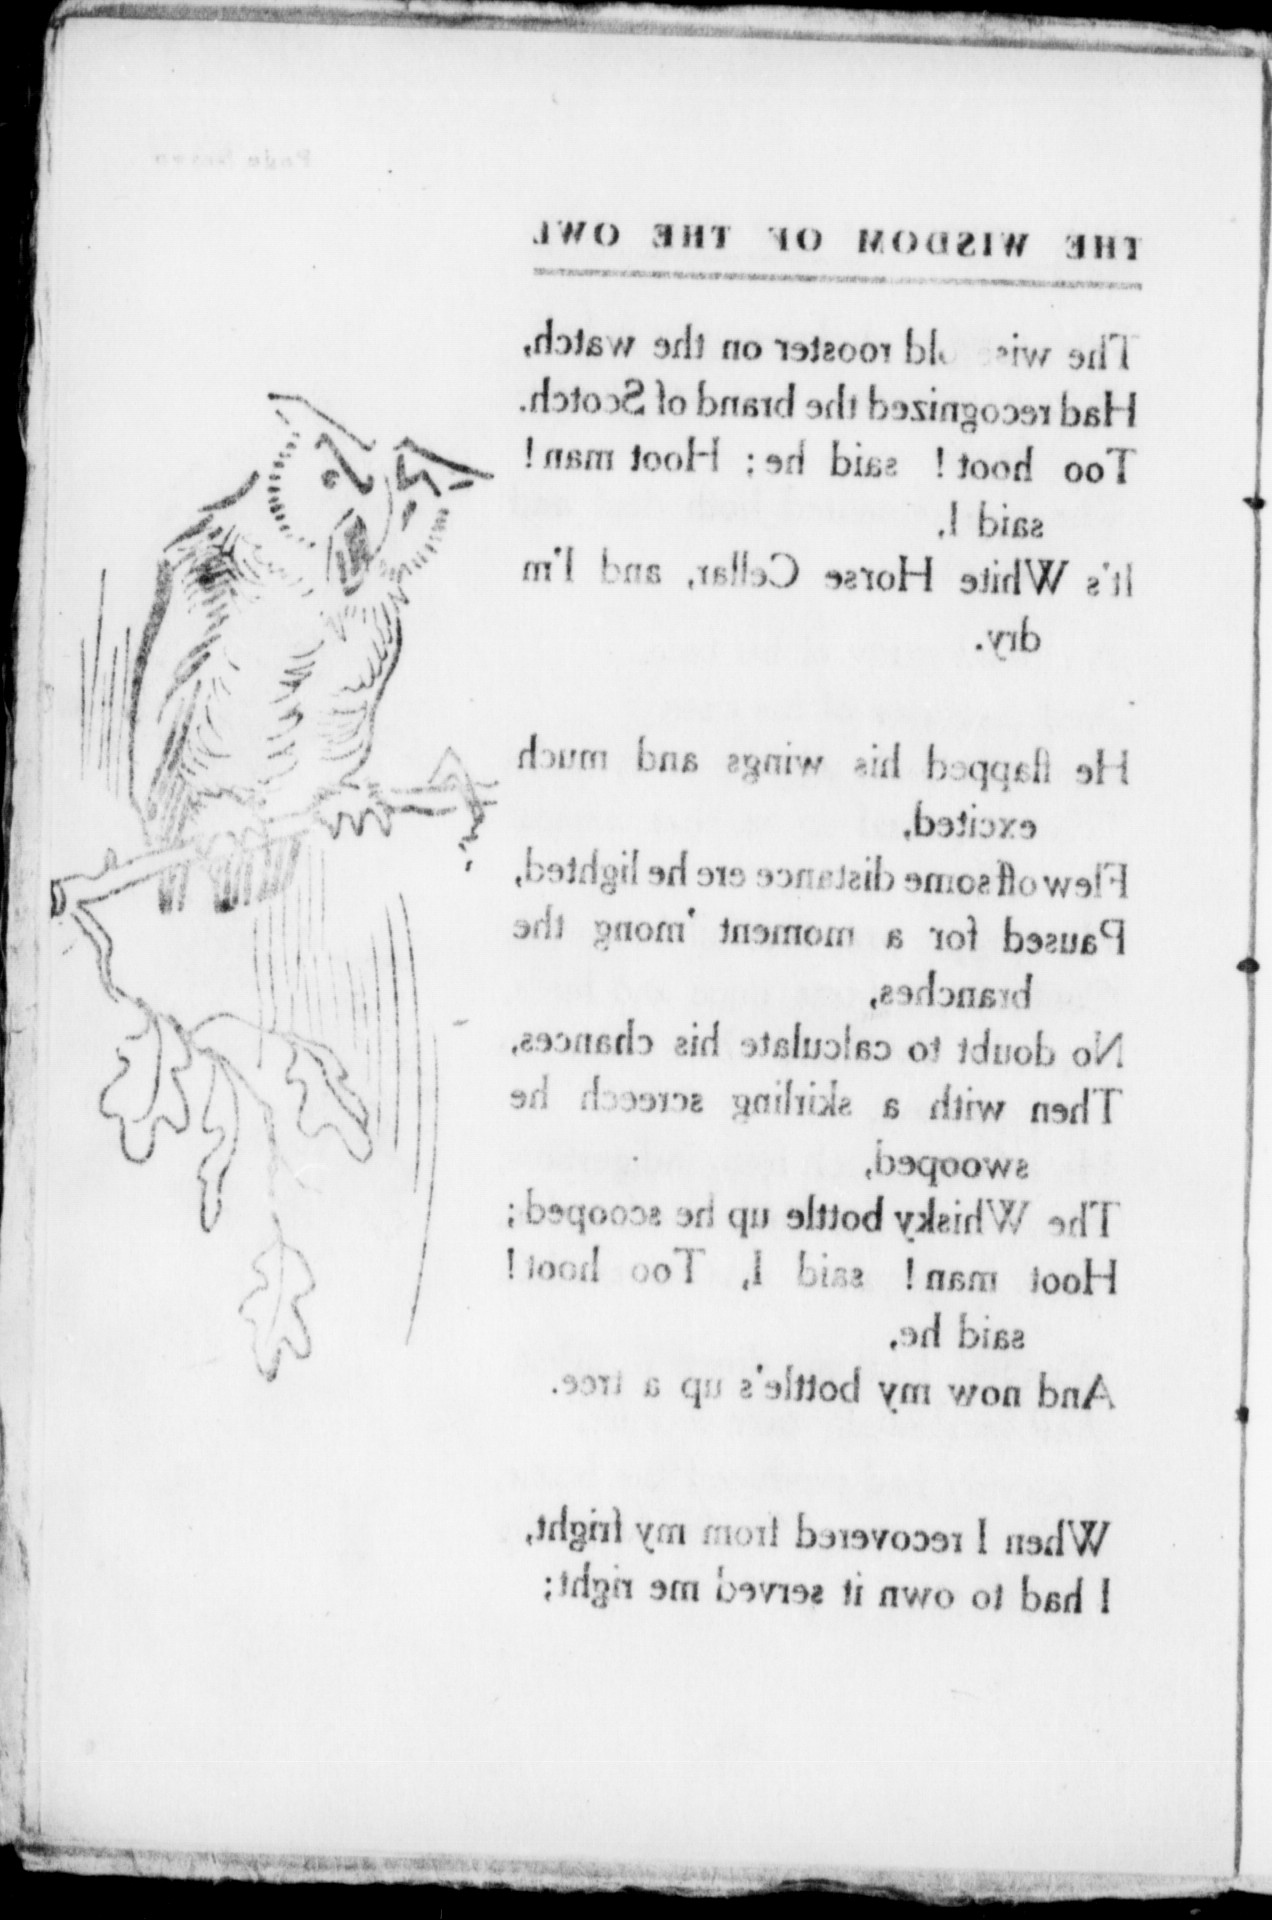 THE WISDOM OF THE OWL
The wise old rooster on the watch,
Had recognized the brand of Scotch.
Too hoot! said he; Hoot man!
said I,
It's White Horse Cellar, and I'm
dry.
He flapped his wings and much
excited,
Flew off some distance ere he lighted,
Paused for a moment 'mong the
branches,
No doubt to calculate his chances,
Then with a skirling screech he
swooped,
The Whisky bottle up he scooped;
Hoot man! said I, Too hoot!
said he,
And now my bottle's up a tree.
When I recovered from my fright,
I had to own it served me right;